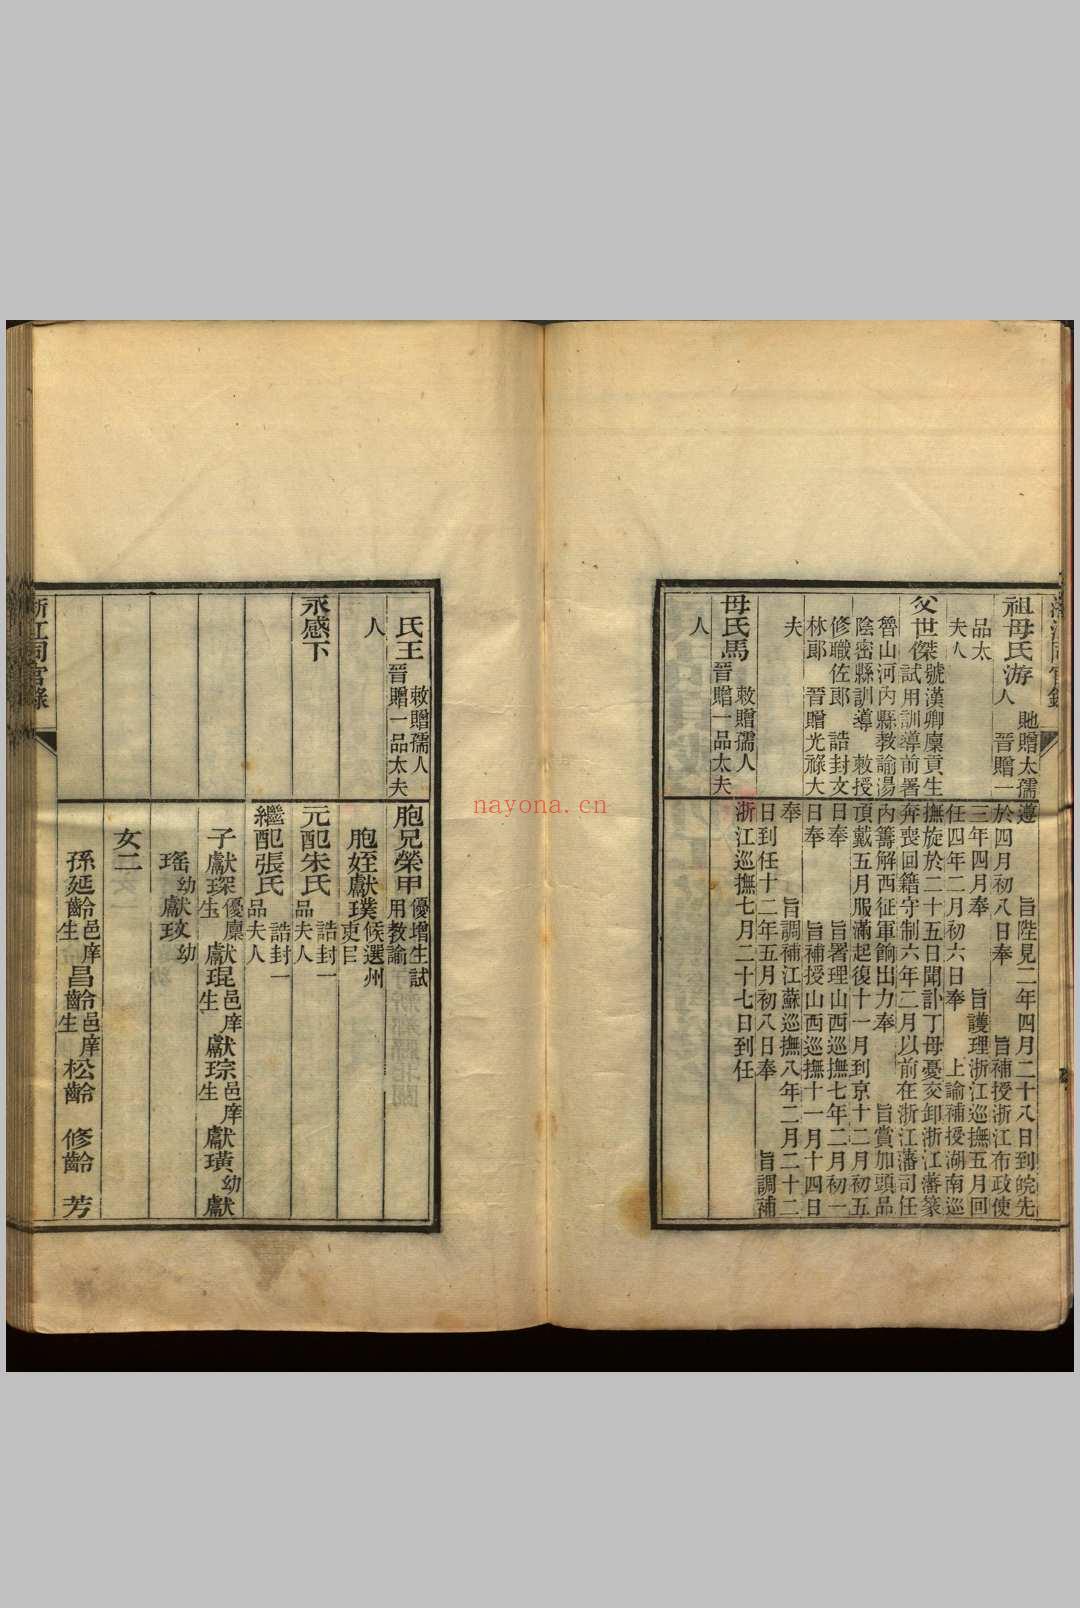 祖母氏游
貤贈太孺
人 晉贈一
品太
夫人
父世傑
號漢卿廩貢生
試用訓導前署
魯山河內縣教諭湯
陰密縣訓導 敕授
修職佐郎 誥封文
林郎 晉贈光祿大
夫
母氏馬
敕贈孺人
晉贈一品太夫
人
遵 旨陛見二年四月二十八日到皖先
於四月初八日奉 旨補授浙江布政使
三年四月奉 旨護理浙江巡撫五月回
任四年二月初六日奉 上諭補授湖南巡
撫旋於二十五日聞訃丁母憂交卸浙江藩篆
奔喪回籍守制六年二月以前在浙江藩司任
內籌解西征軍餉出力奉 旨賞加頭品
頂戴五月服滿起復十一月到京十二月初五
日奉 旨署理山西巡撫七年二月初一
日奉 旨補授山西巡撫十一月十四日
奉 旨調補江蘇巡撫八年二月二十二
日到任十二年五月初八日奉 旨調補
浙江巡撫七月二十七日到任
氏王
敕贈孺人
晉贈一品太夫
人
永感下
胞兄榮甲
優增生試
用教諭
胞姪獻璞
候選州
吏目
元配朱氏
誥封一
品夫人
繼配張氏
誥封一
品夫人
子獻琛 優廩生 獻琨 邑庠生 獻琮 邑庠生 獻璜 幼 獻
瑤 幼 獻玫 幼
女二
孫延齡 邑庠生 昌齡 邑庠生 松齡 修齡 芳
浙江同官錄
nayona.cn